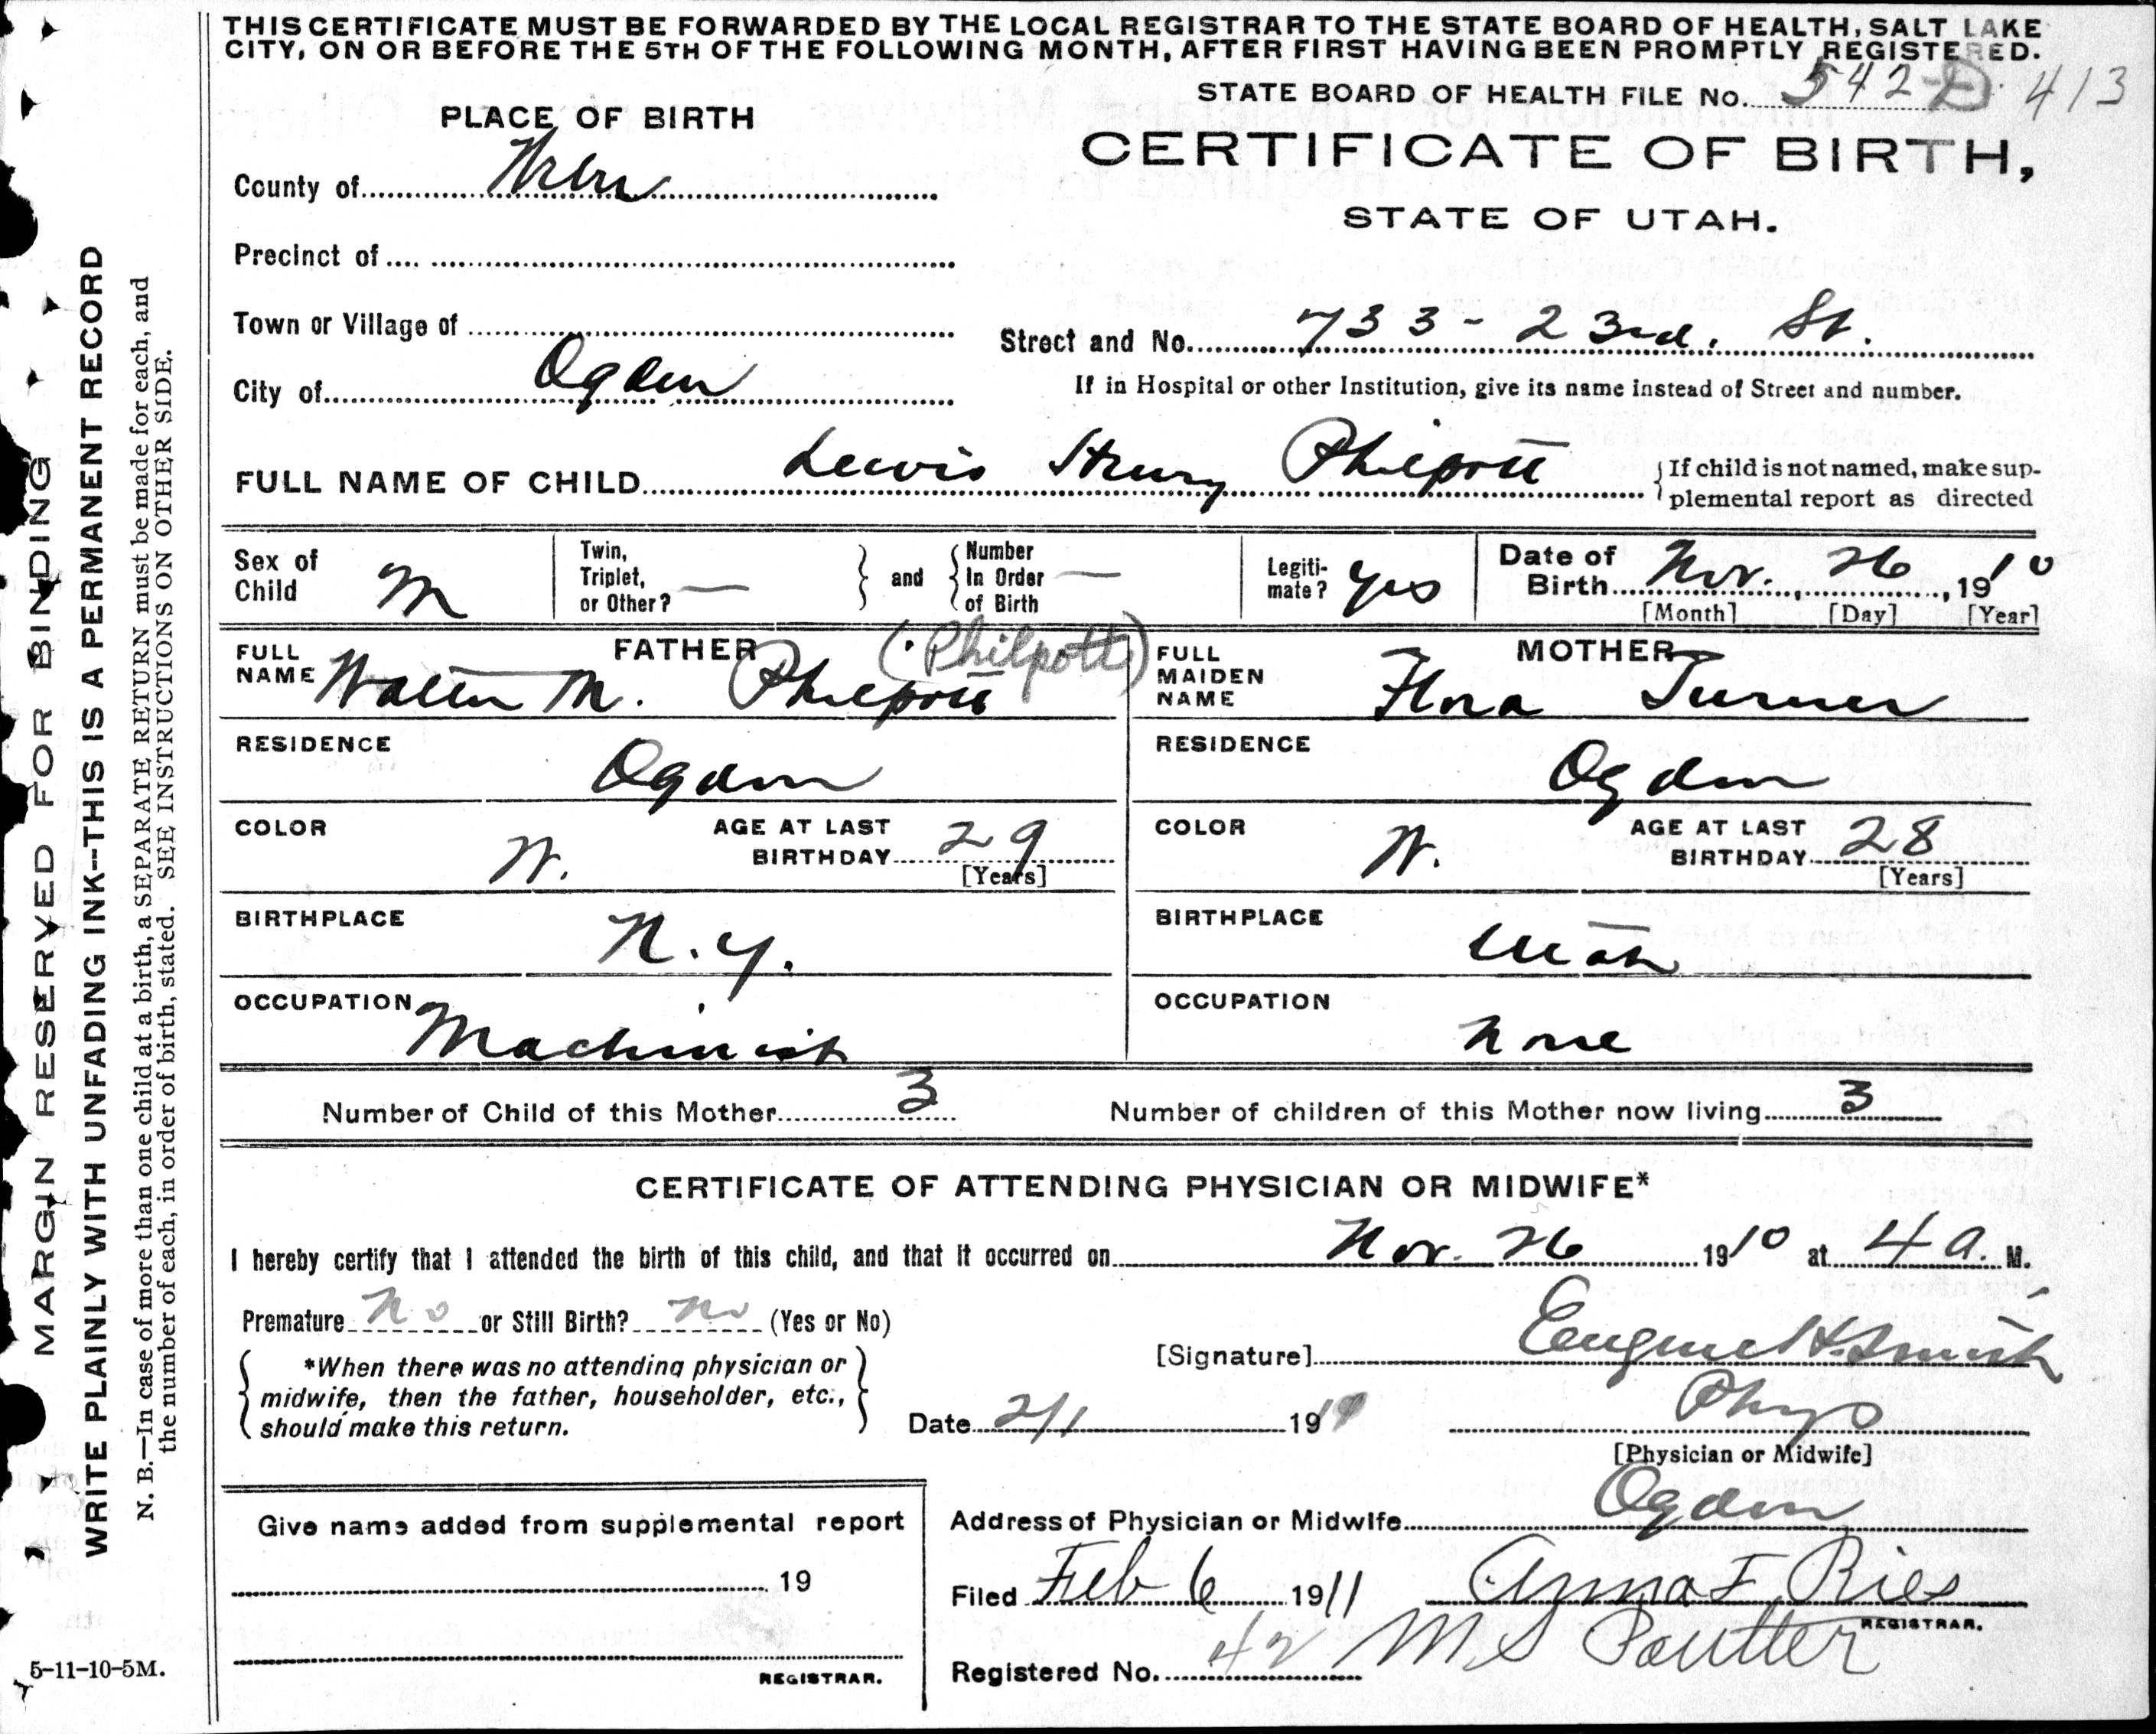 THIS CERTIFICATE MUST BE FORWARDED BY THE LOCAL REGISTRAR TO THE STATE BOARD OF HEALTH, SALT LAKE
CITY, ON OR BEFORE THE 5TH OF THE FOLLOWING MONTH, AFTER FIRST HAVING BEEN PROMPTLY REGISTERED.
STATE BOARD OF HEALTH FILE No. 542-D 413
PLACE OF BIRTH
CERTIFICATE OF BIRTH,
STATE OF UTAH.
County of
Precinct of
Town or Village of
Street and No. 733 - 23rd. St.
City of Ogden
If in Hospital or other Institution, give its name instead of Street and number.
FULL NAME OF CHILD Lewis Henry Philpott
If child is not named, make sup-
plemental report as directed
Sex of Child M
Twin, Triplet, or Other? —
and
Number In Order of Birth —
Legiti-mate? yes
Date of Birth Nov. 26, 1910
[Month] [Day] [Year]
FATHER
FULL NAME Walter M. Philpott (Philpott)
MOTHER
FULL MAIDEN NAME Flora Turner
RESIDENCE Ogden
RESIDENCE Ogden
COLOR W.
AGE AT LAST BIRTHDAY 29
[Years]
COLOR W.
AGE AT LAST BIRTHDAY 28
[Years]
BIRTHPLACE N.Y.
BIRTHPLACE Utah
OCCUPATION Machinist
OCCUPATION None
Number of Child of this Mother 3
Number of children of this Mother now living 3
CERTIFICATE OF ATTENDING PHYSICIAN OR MIDWIFE*
I hereby certify that I attended the birth of this child, and that it occurred on Nov. 26 1910 at 4 a. M.
Premature No or Still Birth? no (Yes or No)
*When there was no attending physician or
midwife, then the father, householder, etc.,
should make this return.
[Signature] Eugene H. Smith
Date 2/1 191
Phys
[Physician or Midwife]
Give name added from supplemental report
19
REGISTRAR.
Address of Physician or Midwife Ogden
Filed Feb 6 1911 Anna F Ries
REGISTRAR.
Registered No. 42 M S
5-11-10-5M.
MARGIN RESERVED FOR BINDING
WRITE PLAINLY WITH UNFADING INK--THIS IS A PERMANENT RECORD
N. B.—In case of more than one child at a birth, a SEPARATE RETURN must be made for each, and
the number of each, in order of birth, stated. SEE INSTRUCTIONS ON OTHER SIDE.